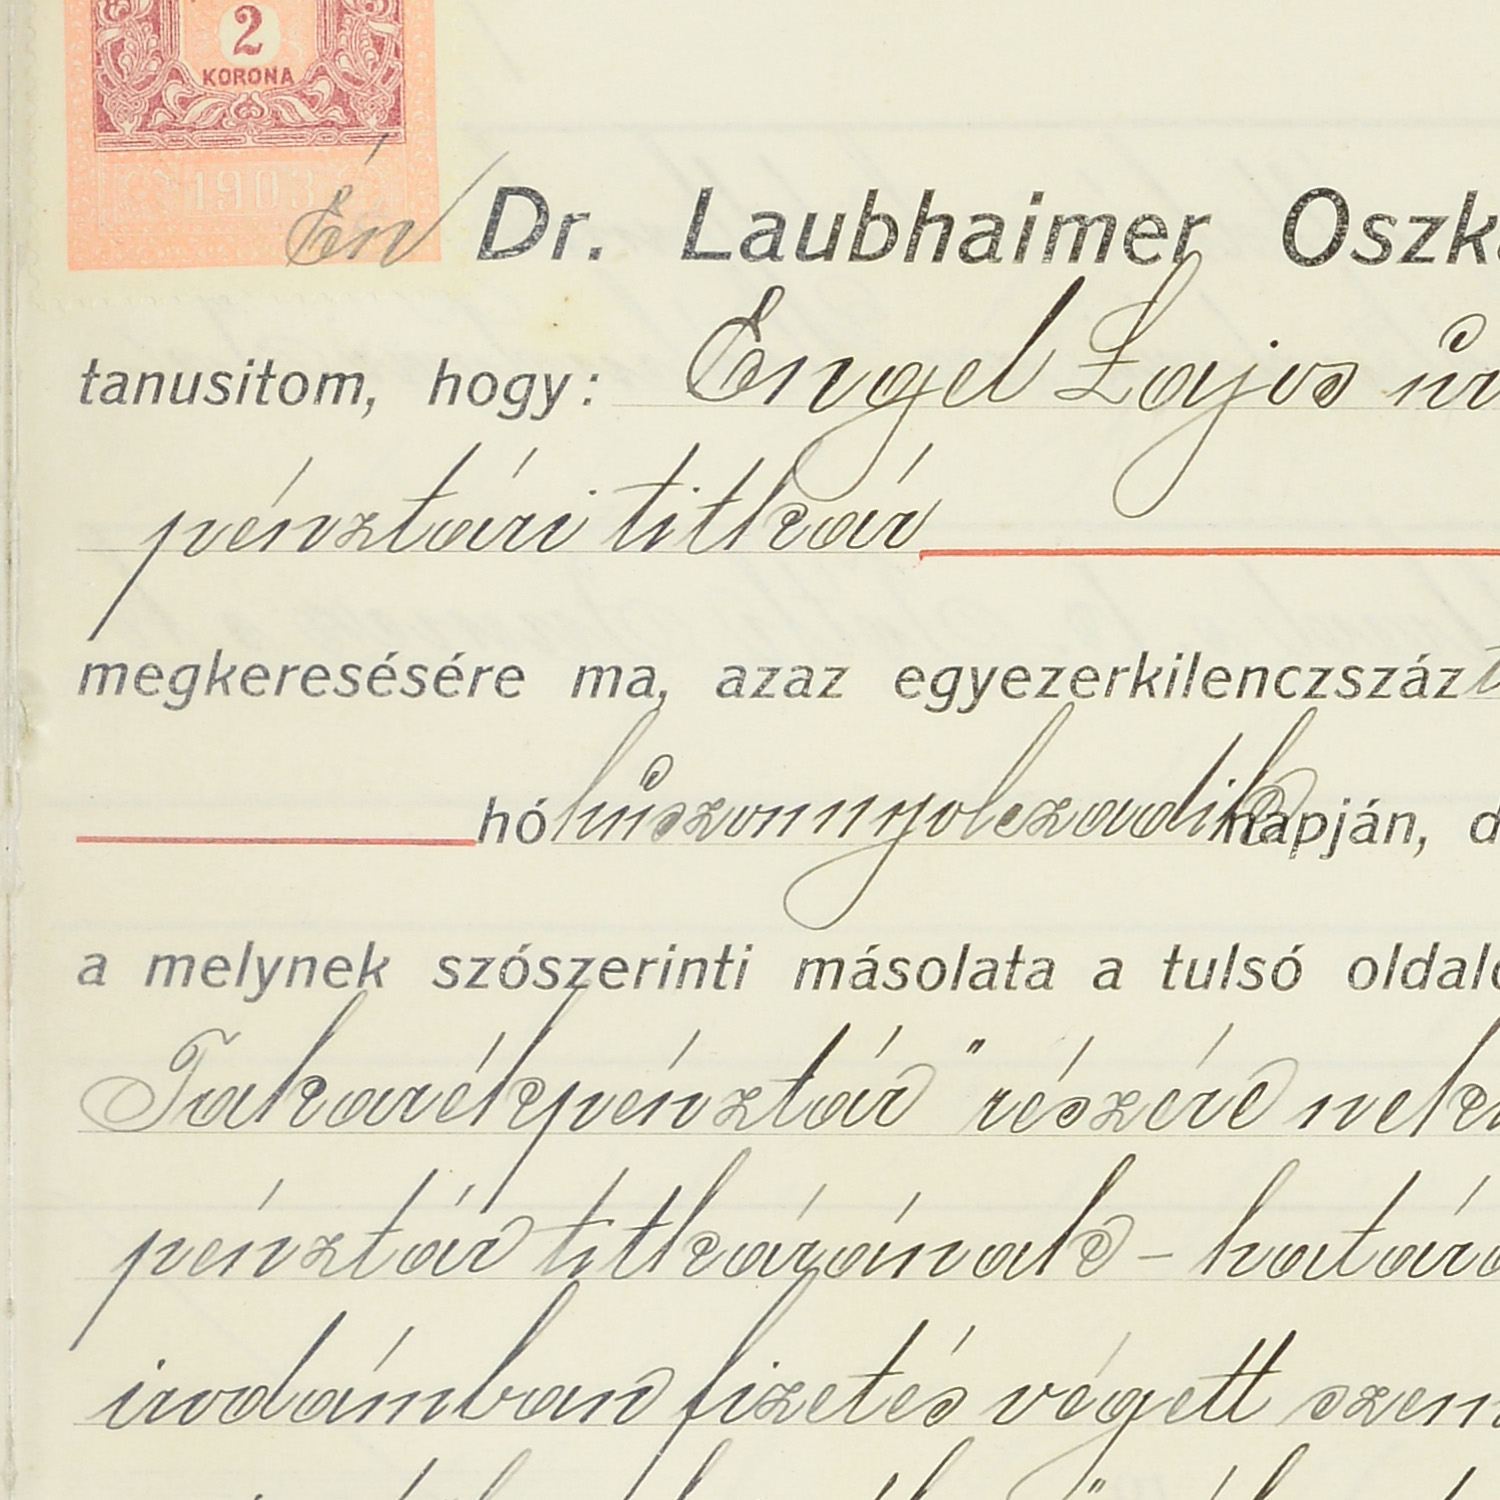 2
KORONA
1903
Én Dr. Laubhaimer Oszká
tanusitom, hogy: Engel Lajos úr
pénztári titkár
megkeresésére ma, azaz egyezerkilenczszáz
hó húszonnyolczadik napján, d
a melynek szószerinti másolata a tulsó oldalo
Takarékpénztár" részére nek
pénztár titkárának - határo
irodámban fizetés végett szem